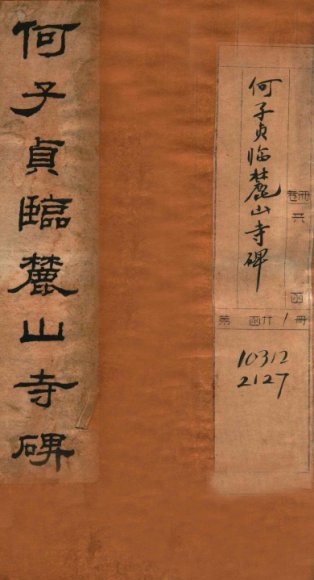 何子貞臨麓山寺碑
何子貞临麓山寺碑
冊
函
共
第 函 1 冊
10312
2127